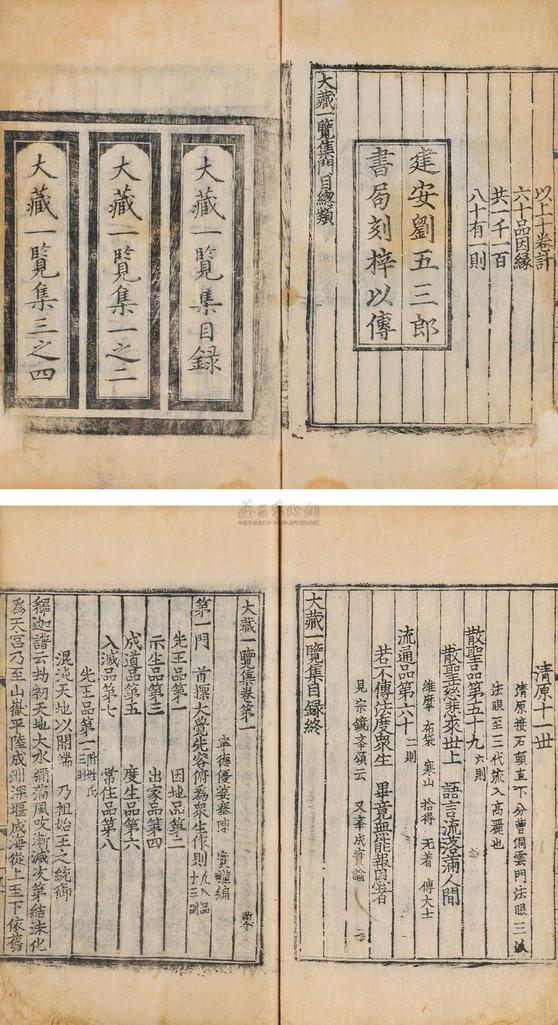 以上十卷計
六十品因緣
共一千一百
八十有一則
建安劉五三郎
書局刻梓以傳
大藏一覽集門目總類
大藏一覽集目録
大藏一覽集一之二
大藏一覽集三之四
清原十一世
清原接石頭直下分曹洞雲門法眼三派
法眼至三代流入高麗也
散聖品第五十九 六則
散聖慈悲來世上 語言流落滿人間
維摩 布袋 寒山 拾得 无着 傅大士
流通品第六十 二則
若不傳法度衆生 畢竟無能報因者
見宗鏡峯頌云 又峯成實論
大藏一覽集目録終
大藏一覽集卷第一
寧德優婆塞陳 實謹編
第一門 首摽大覺先容俯為衆生作則
先王品第一 因地品第二
示生品第三 出家品第四
成道品第五 度生品第六
入滅品第七 常住品第八
先王品第一
混沌天地以開端 乃祖始王之統御
釋迦譜云劫初天地大水瀰滿風吹漸減次第結沫化
為天宮乃至山嶽平陸成洲深堰成海從上至下依舊